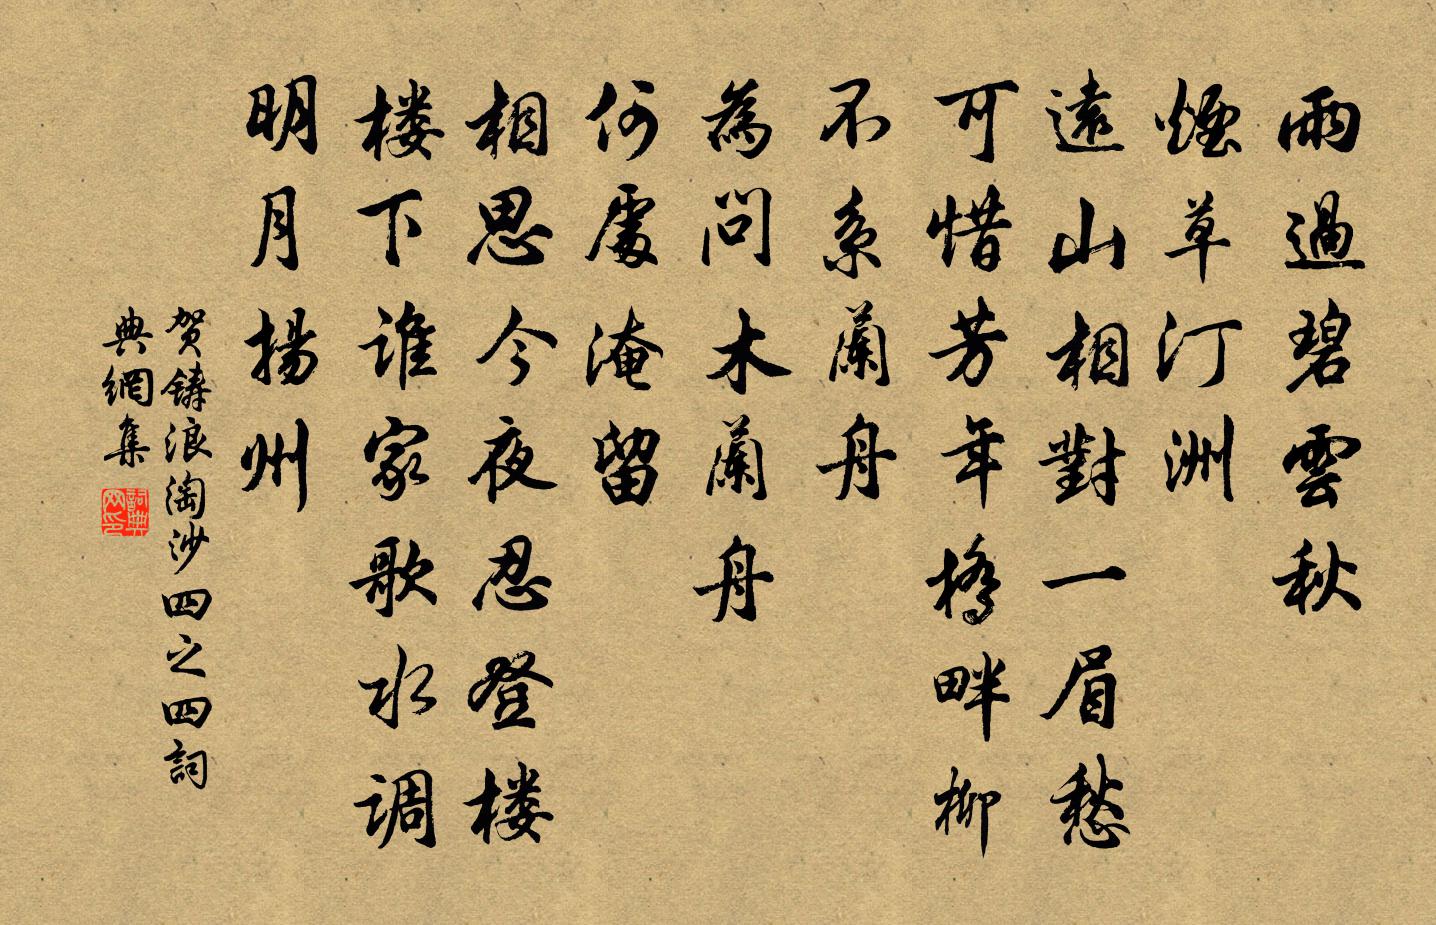 雨過碧雲秋
煙草汀洲
遠山相對一眉愁
可惜芳年橋畔柳
不系蘭舟
為問木蘭舟
何處淹留
相思今夜忍登楼
楼下谁家歌水调
明月揚州
贺鑄浪淘沙四之四詞
典網集
詞典网印